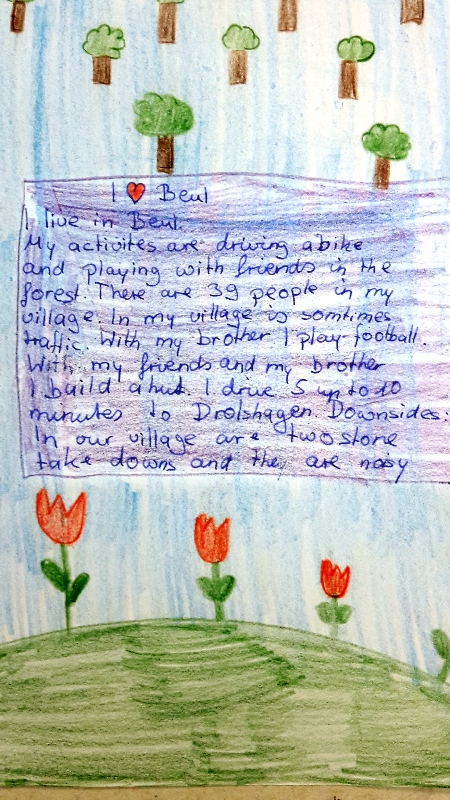 I ❤ Beul
I live in Beul.
My activites are driving a bike
and playing with friends in the
forest. There are 39 people in my
village. In my village is somtimes
traffic. With my brother I play football.
With my friends and my brother
I build a hut. I drive 5 up to 10
minutes to Drolshagen. Downsides:
In our village are two stone
take downs and they are noisy